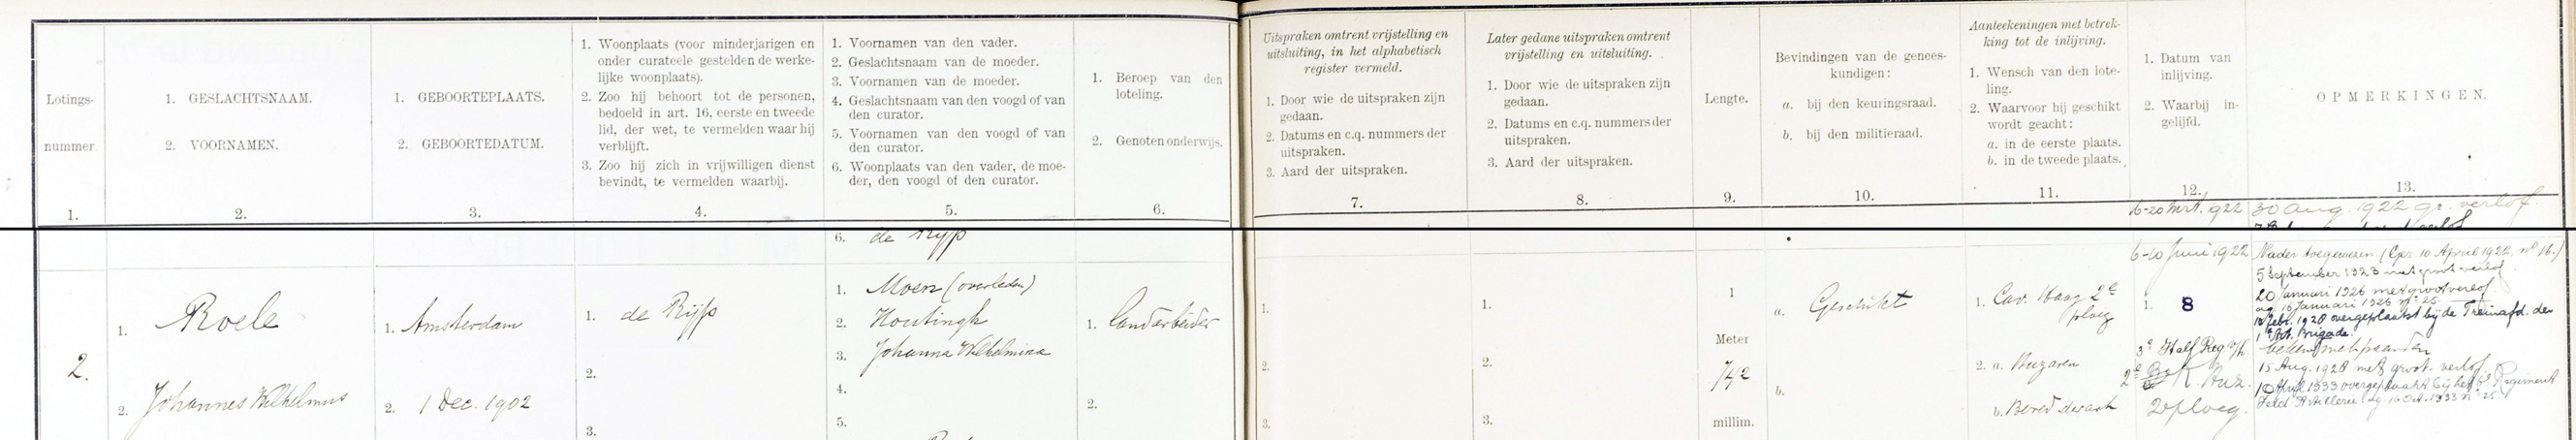 Lotings-
nummer.
1.
1. GESLACHTSNAAM.
2. VOORNAMEN.
2.
1. GEBOORTEPLAATS.
2. GEBOORTEDATUM.
3.
1. Woonplaats (voor minderjarigen en
onder curateele gestelden de werke-
lijke woonplaats).
2. Zoo hij behoort tot de personen,
bedoeld in art. 16, eerste en tweede
lid, der wet, te vermelden waar hij
verblijft.
3. Zoo hij zich in vrijwilligen dienst
bevindt, te vermelden waarbij.
4.
1. Voornamen van den vader.
2. Geslachtsnaam van de moeder.
3. Voornamen van de moeder.
4. Geslachtsnaam van den voogd of van
den curator.
5. Voornamen van den voogd of van
den curator.
6. Woonplaats van den vader, de moe-
der, den voogd of den curator.
5.
1. Beroep van den
loteling.
2. Genoten onderwijs.
6.
Uitspraken omtrent vrijstelling en
uitsluiting, in het alphabetisch
register vermeld.
1. Door wie de uitspraken zijn
gedaan.
2. Datums en c.q. nummers der
uitspraken.
3. Aard der uitspraken.
7.
Later gedane uitspraken omtrent
vrijstelling en uitsluiting.
1. Door wie de uitspraken zijn
gedaan.
2. Datums en c.q. nummers der
uitspraken.
3. Aard der uitspraken.
8.
Lengte.
9.
Bevindingen van de genees-
kundigen:
a. bij den keuringsraad.
b. bij den militieraad.
10.
Aanteekeningen met betrek-
king tot de inlijving.
1. Wensch van den lote-
ling.
2. Waarvoor hij geschikt
wordt geacht:
a. in de eerste plaats.
b. in de tweede plaats.
11.
1. Datum van
inlijving.
2. Waarbij in-
gelijfd.
12.
16-20 Mrt. 1922
OPMERKINGEN.
13.
30 Aug. 1922 gr. verlof.
2.
1. Roele
2. Johannes Wilhelmus
1. Amsterdam
2. 1 Dec. 1902
1. de Rijp
2.
3.
6. de Rijp
1. Moen (overleden)
2. Houtingh
3. Johanna Wilhelmina
4.
5.
1. landarbeider
2.
1.
2.
3.
1.
2.
3.
1
Meter
742
millim.
a. Geschikt
b.
1. Cav. Haag 2e
ploeg
2. a. Huzaren
b. Bered. 
6-10 Juni 1922
1. 8
3e Half Reg. v/h
2e R. Huz.
2e ploeg.
Nader toegewezen (Cgr 10 April 1922, no 16.)
5 September 1923 met groot verlof.
20 Januari 1926 met groot verlof
ag. 16 Januari 1926 no 25.
febr. 1928 overgeplaatst bij de Treinafd. der
1e Brigade.
bekend met paarden
15 Aug. 1928 met groot verlof.
1933 overgeplaatst bij het 6e Regiment
Veld Artillerie. ag. 16 Oct. 1933 no 25